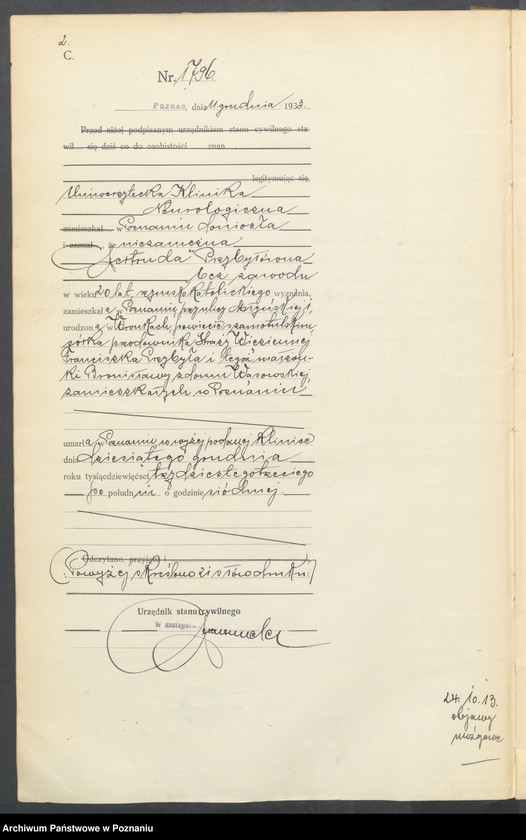 2.
C.
Nr. 1796.
Poznań, dnia 11 grudnia 1933.
Przed niżej podpisanym urzędnikiem stanu cywilnego sta
wił się dziś co do osobistości znan
legitymując się,
Uniwersytecka Klinika
Neurologiczna
zamieszkał w Poznaniu doniosła
i zeznał, że niezamężna
Gertruda Przybyłówna
bez zawodu
w wieku 20 lat, rzymskokatolickiego wyznania,
zamieszkała w Poznaniu przy ulicy
urodzona w Wronkach, powiecie szamotulskim
córka przodownika Straży Więziennej
Franciszka Przybyła i jego małżon-
ki Bronisławy z domu Wąsowskiej,
zamieszkałych w Poznaniu
umarła w Poznaniu w wyżej podanej Klinice
dnia dziesiątego grudnia
roku tysiąc dziewięćset trzydziestego trzeciego
po południu o godzinie siódmej
Odczytano, przyjęto i
(: Powyżej skreślono 21 słów druku :)
Urzędnik stanu cywilnego
W zastępstwie
24. 10. 13.
objawy
mózgowe
Archiwum Państwowe w Poznaniu